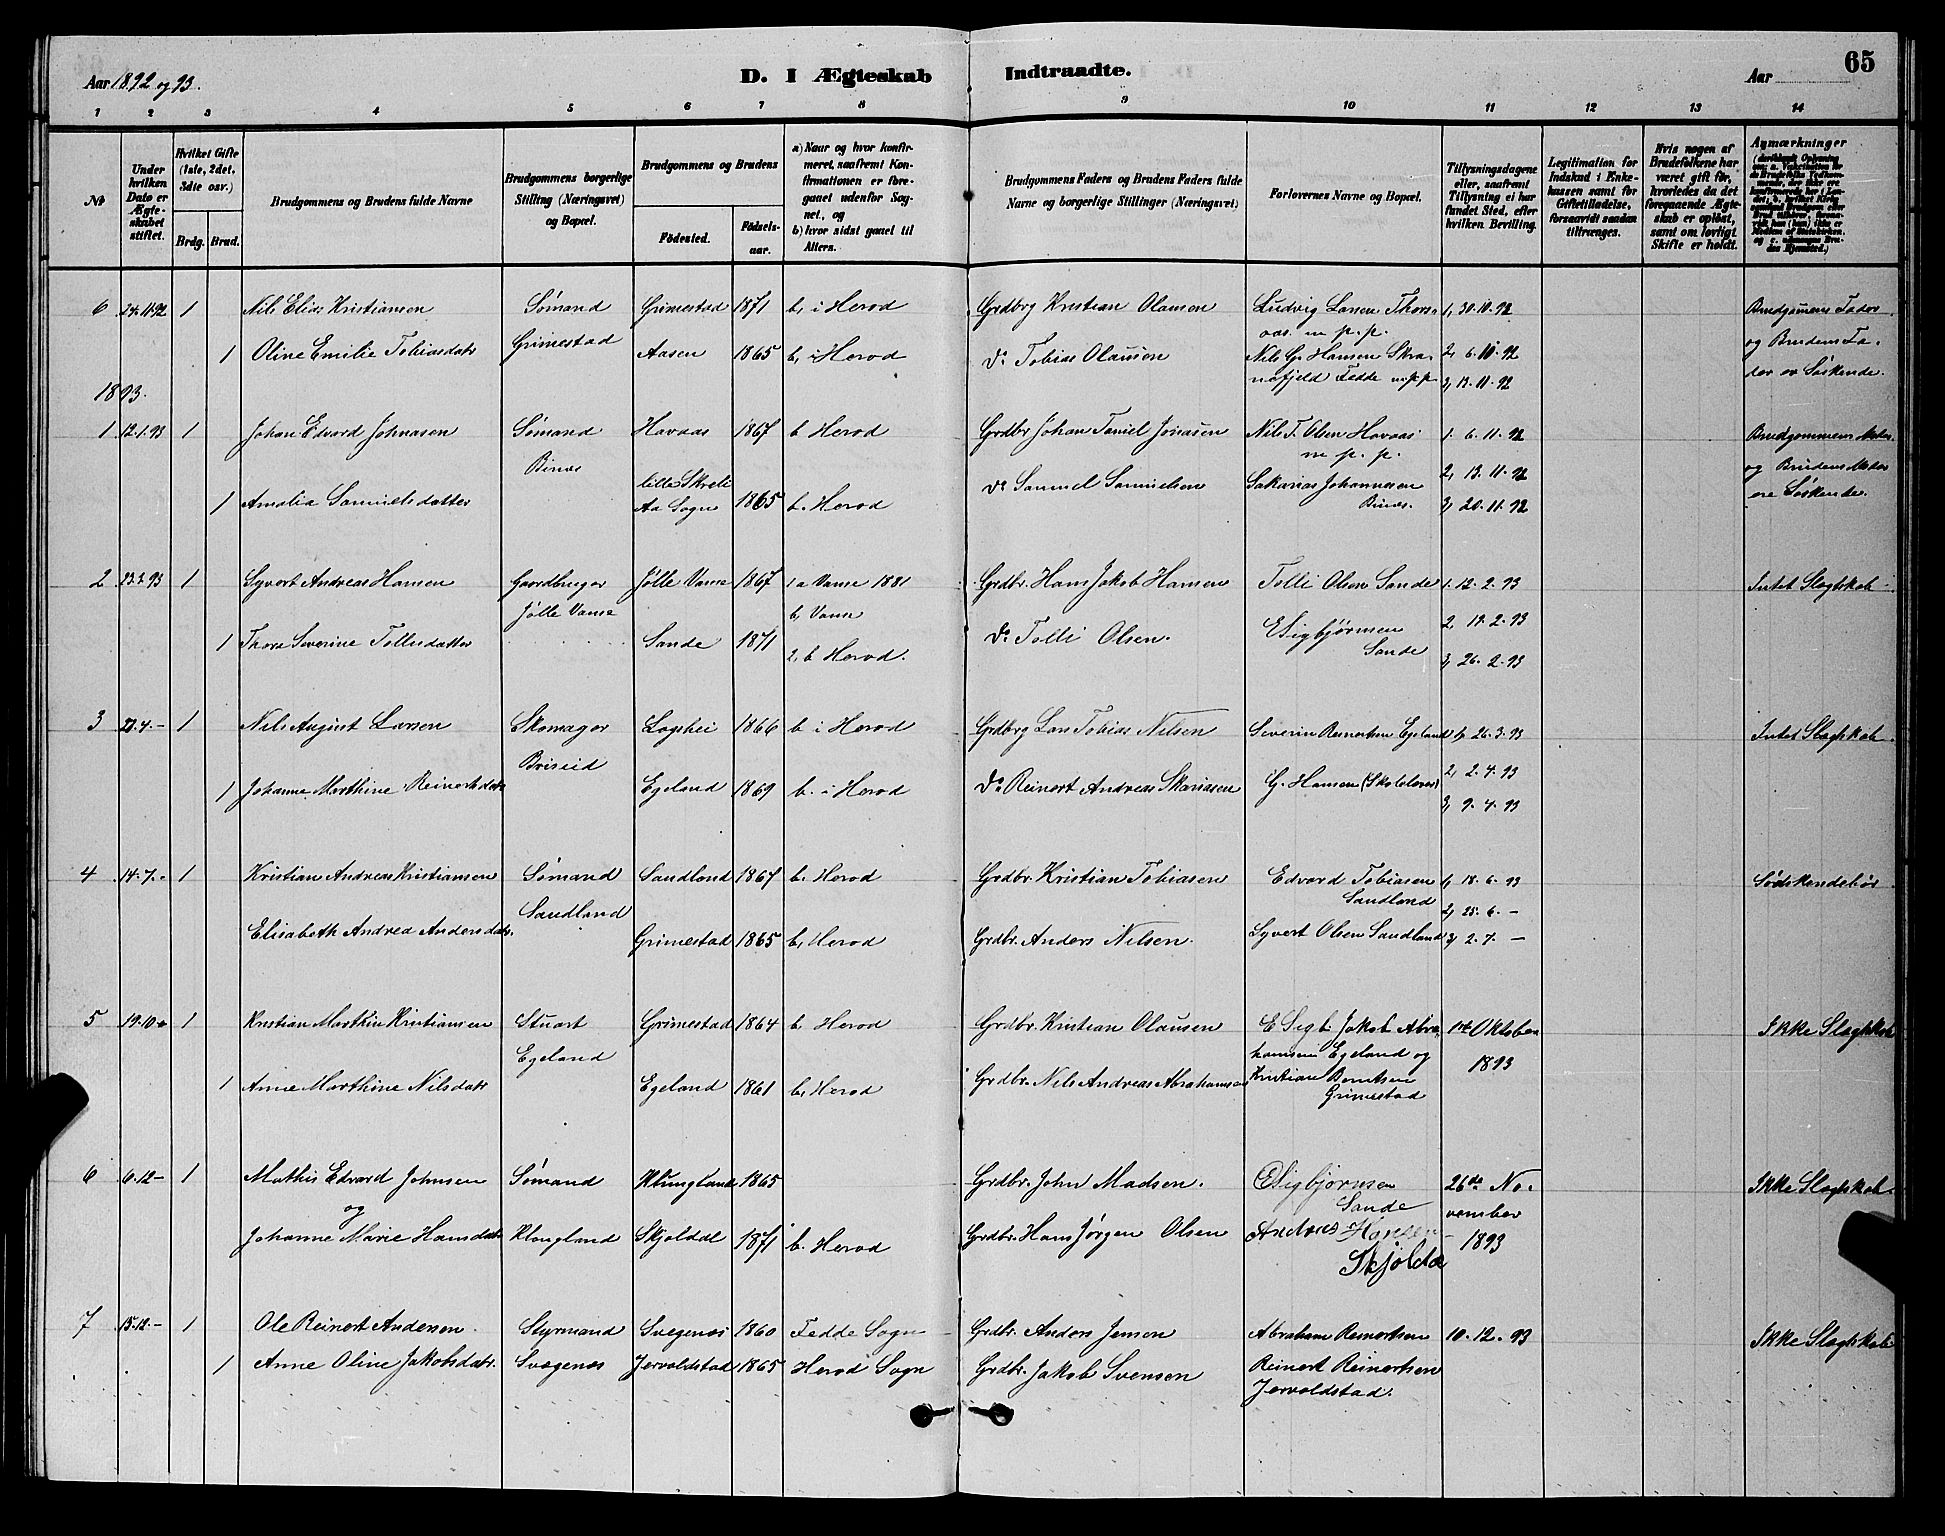 Aar 1892 og 93.
D. I Ægteskab Indtraadte.
Aar
65
1 2 3 4 5 6 7 8 9 10 11 12 13 14
No
Under hvilken Dato er Ægteskabet stiftet.
Hvilket Gifte (1ste, 2det, 3die osv.)
Brdg. Brud.
Brudgommens og Brudens fulde Navne
Brudgommens borgerlige Stilling (Næringsvei) og Bopæl.
Brudgommens og Brudens
Födested. Födselsaar.
a) Naar og hvor konfirmeret, saafremt Konfirmationen er foregaaet udenfor Sognet, og
b) hvor sidst gaaet til Alters.
Brudgommens Faders og Brudens Faders fulde Navne og borgerlige Stillinger (Næringsvei)
Forlovernes Navne og Bopæl.
Tillysningsdagene eller, saafremt Tillysning ei har fundet Sted, efter hvilken Bevilling.
Legitimation for Indskud i Enkekassen samt for Giftetilladelse, forsaavidt saadan tiltrænges.
Hvis nogen af Brudefolkene har været gift för, hvorledes da det foregaaende Ægteskab er oplöst, samt om lovligt Skifte er holdt.
Anmærkninger
6 24.11.92 1 Nils Elias Kristiansen Sømand Grimestad 1871 b, i Herod Grdbrg Kristian Olausen Ludvig Larsen 1, 30.10.92 Brudgomens Fader
m. p. p.
1 Oline Emilie Tobiasdatr Grimestad Aasen 1865 b, i Herod Do Tobias Olausen Nils G. Hansen 2, 6.11.92 og Brudens Fa-
Fedde m.p.p. 3, 13.11.92 der er Söskende.
1893.
1 12.1.93 1 Johan Edvard Johnasen Sømand Havaas 1867 b Herod Grdbr Johan Daniel Jonasen Nils T. Olsen Havaas 1. 6.11.92 Brudgommens Moder
m. p. p. og Brudens Moder
1 Amalia Samuelsdatter Binæs lille Skreli Aa Sogn 1865 b. Herod Do Samuel Samuelsen Sakarias Johannesen Binæs. 2, 13.11.92 ere Söskende.
3, 20.11.92
2 1 Syvert Andreas Hansen Gaardbruger Jølle Vanse 1867 1 a Vanse 1881 Grdbr. Hans Jakob Hansen Tolli Olsen Sande 1. 12.2.93 Intet Slægtskab
Jølle Vanse b, Vanse
1 Thora Severine Tollisdatter Sande 1871 2, b Herod. Do Tolli Olsen. E Sigbjørnsen Sande 2, 19.2.93
3, 26.2.93
3 23.4.— 1 Nils August Larsen Skomager Laphei 1866 b i Herod Grdbrg Lars Tobias Nilsen Severin Reinertsen Egeland 1, 26.3.93 Intet Slægtskab
Briseid 2, 2.4.93
1 Johanne Marthine Reinertsdatr Egeland 1869 b. i Herod Do Reinert Andreas Skariasen G. Hansen (Skolelærer) 3, 9.4.93
4 14.7.- 1 Kristian Andreas Kristiansen Sømand Sandland 1867 b. Herod Grdbr. Kristian Tobiasen Edvard Tobiasen Sandland 1, 18.6.93 Södskendebör
Sandland 2, 25.6.—
Elisabeth Andrea Andersdatr. Grimestad 1865 b, Herod Grdbr. Anders Nilsen. Syvert Olsen Sandland 3, 2.7.—
5 19.10- 1 Kristian Marthin Kristiansen Stuart Grimestad 1864 b. Herod Grdbr. Kristian Olausen E Sigb. Jakob Abra- 1ste Oktober Ikke Slægtskab
Egeland hamsen Egeland og 1893
1 Anne Marthine Nilsdatr Egeland 1861 b, Herod Grdbr. Nils Andreas Abrahamsen Kristian Berntsen
Grimestad
6 6.12— 1 Mathis Edvard Johnsen Sømand Klungland 1865 Grdbr. John Madsen. E Sigbjørnsen 26de No- Ikke Slægtskab
og Sande vember
Johanne Marie Hansdatr Klungland Skjoldal 1871 b. Herod Grdbr. Hans Jørgen Olsen Andreas Hansen 1893
7 15.12.— 1 Ole Reinert Andersen Styrmand Svegenæs 1860 Fedde Sogn Grdbr. Anders Jensen Abraham Reinertsen 10.12.93 Ikke Slægtskab
1 Anne Oline Jakobsdatr. Svegenæs Jervoldstad 1865 Herod Sogn Grdbr. Jakob Svensen Reinert Reinertsen
Jervoldstad.